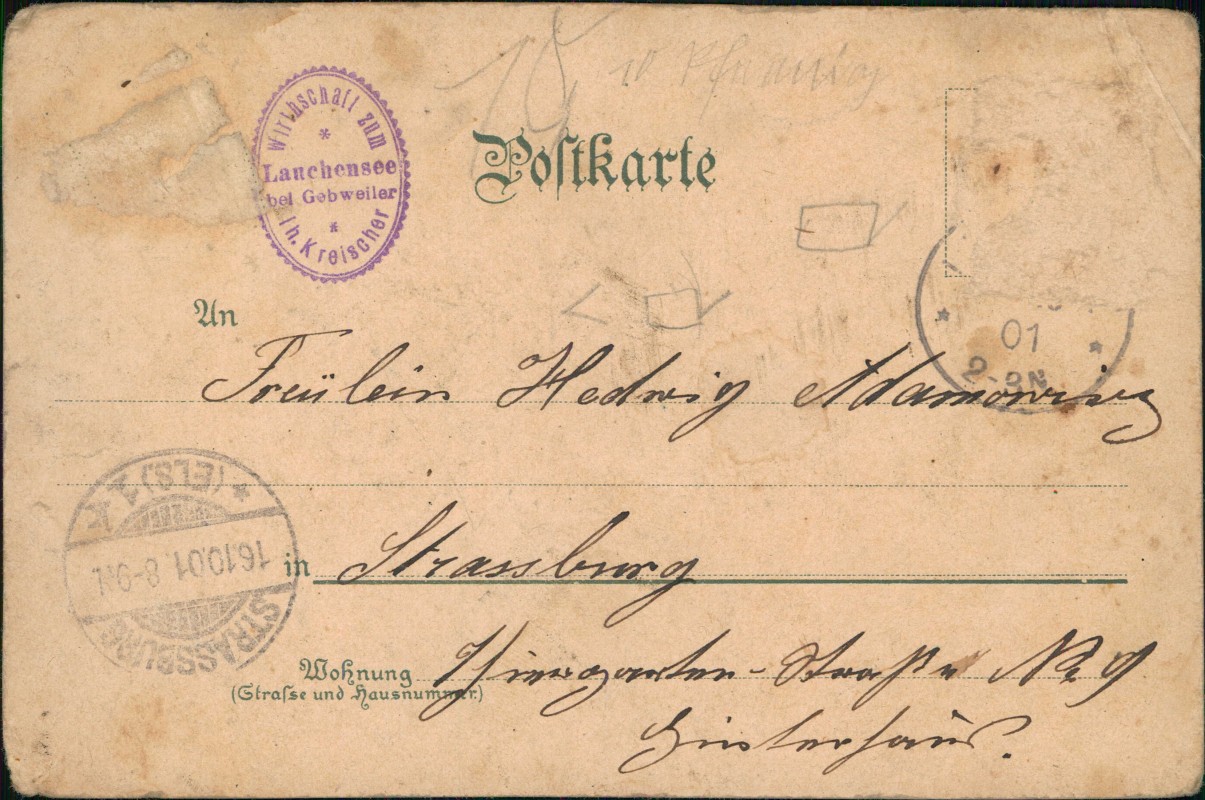 Wirthschaft zum
Lauchensee
bei Gebweiler
Th. Kreischer
Postkarte
01
2-3N
An
Fräulein Hedwig Adamowicz
STRASSBURG
(ELS) 1 K
16.10.01 8-9N.
in Strassburg
Wohnung Thiergarten-Straße No 9
(Strasse und Hausnummer)
Hinterhaus.